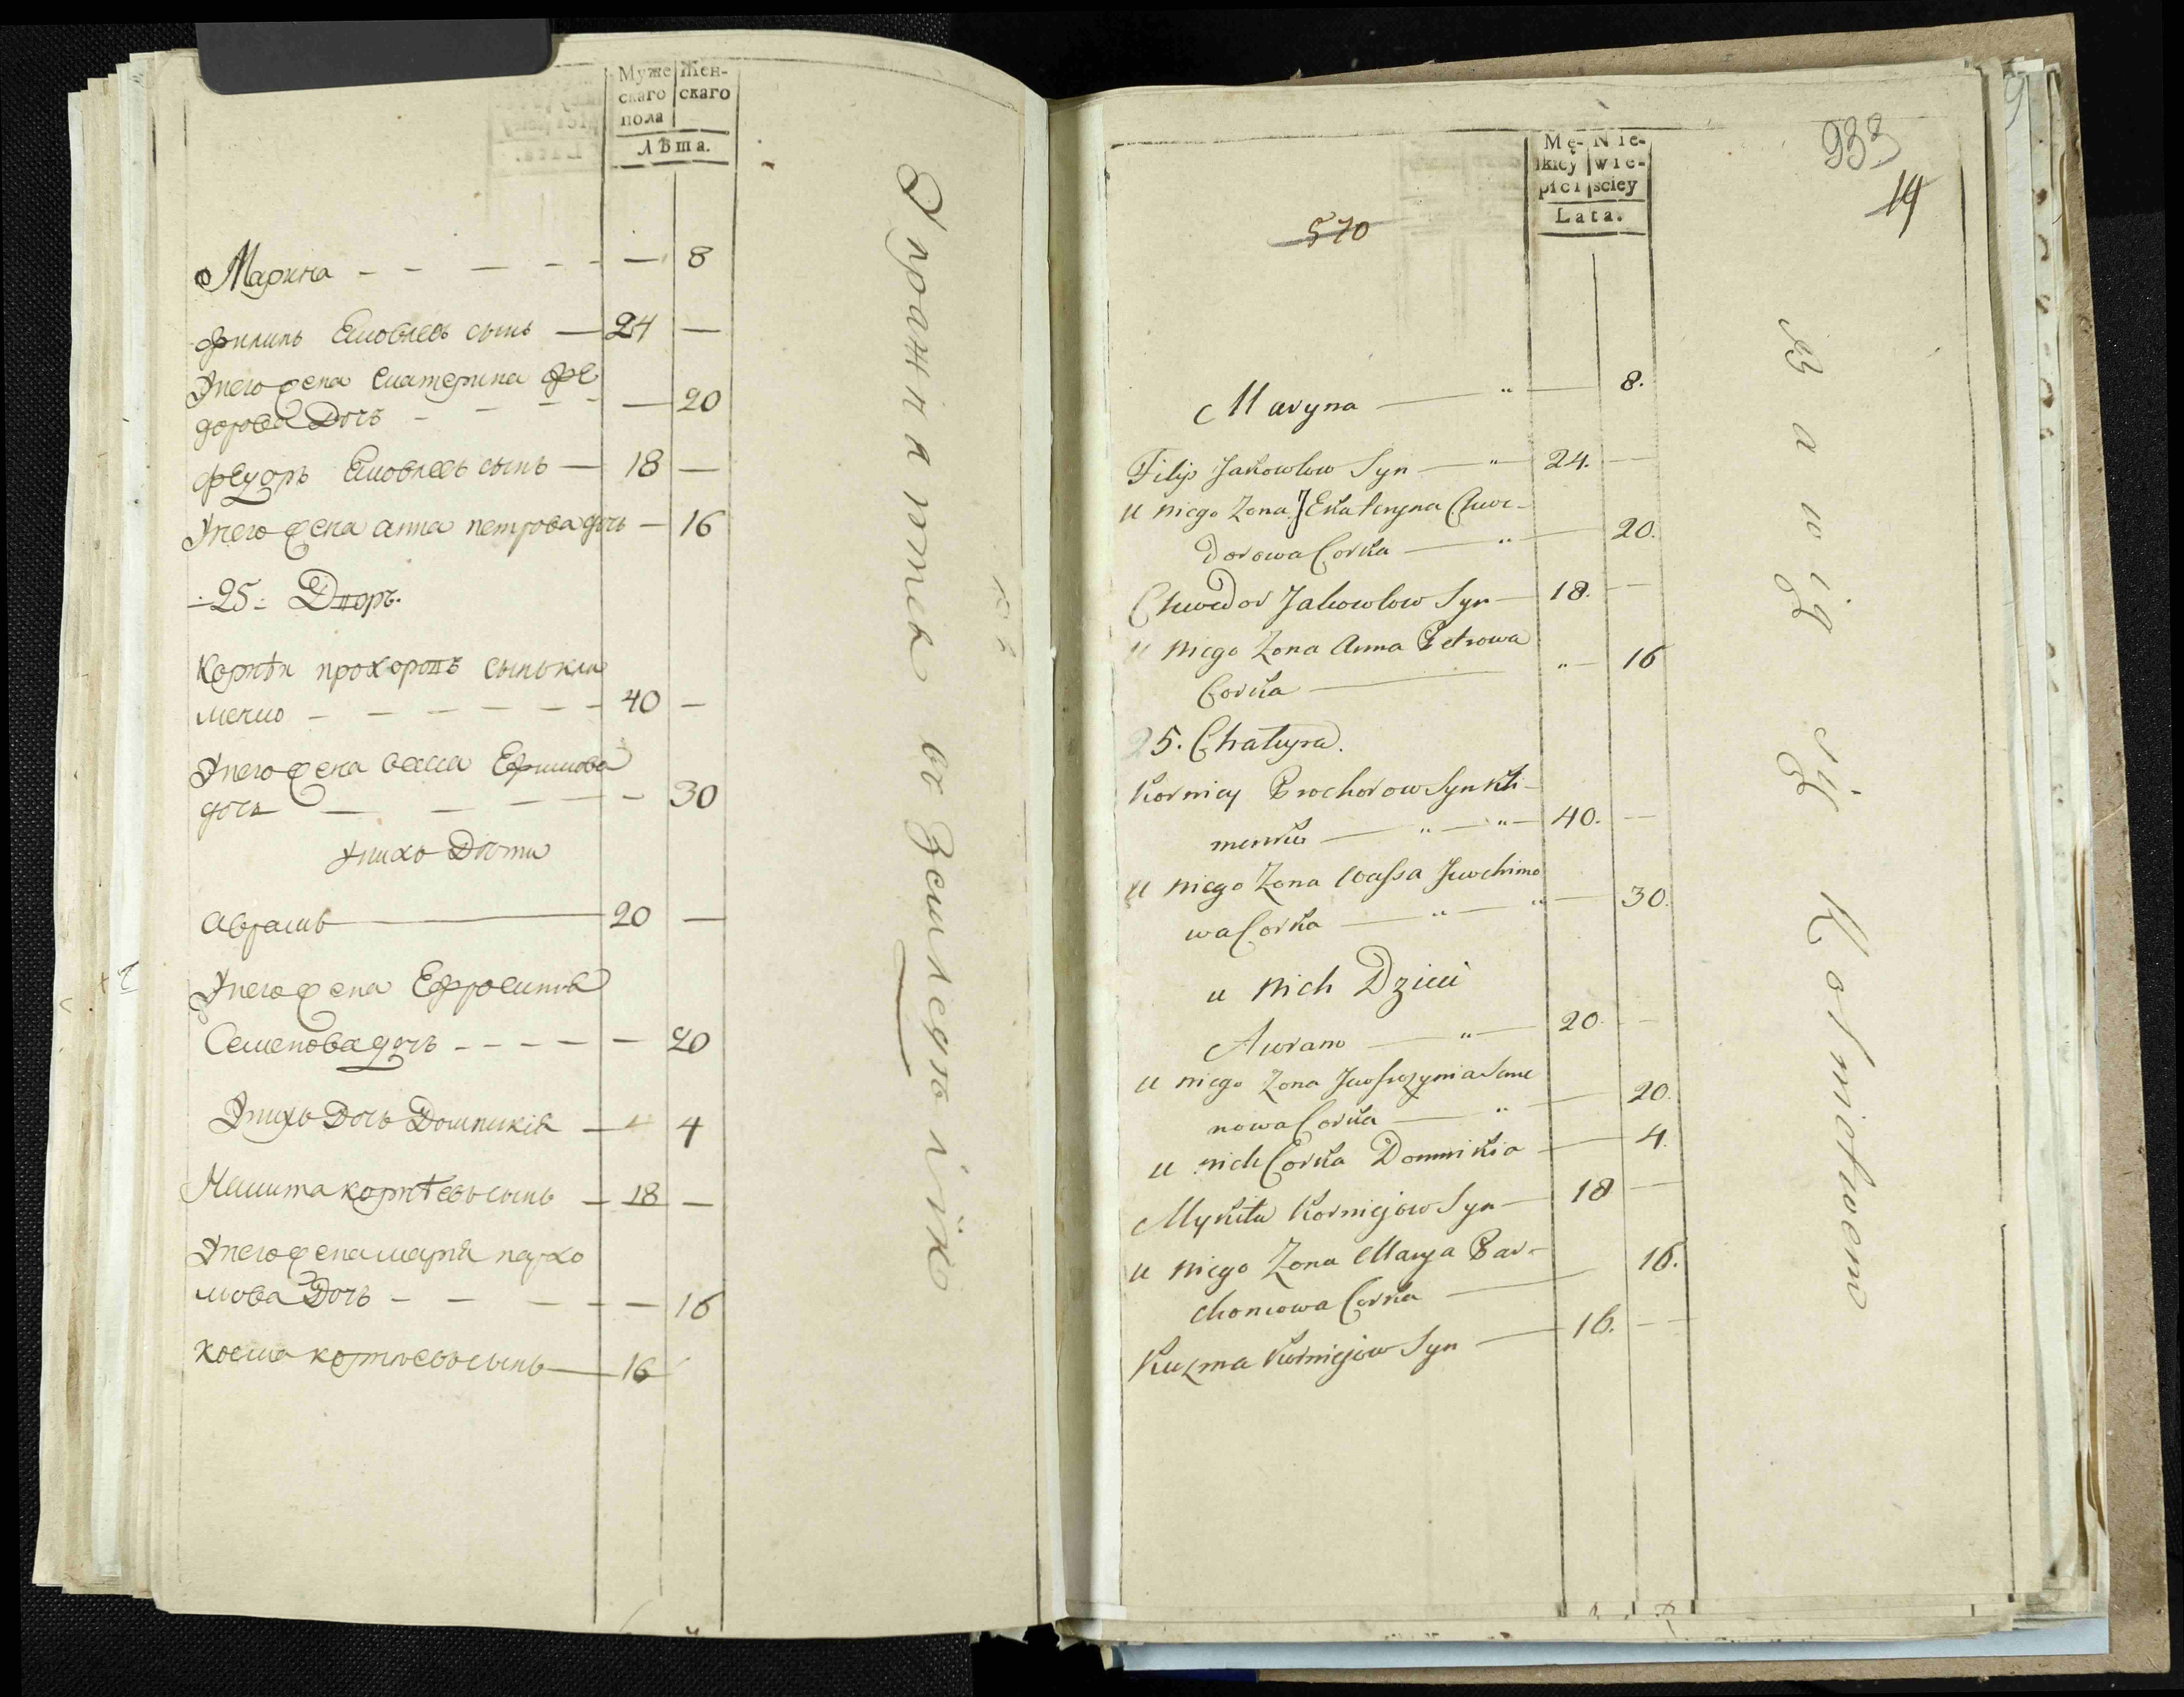 Муже
скаго
пола
Жен-
скаго
Лѣта.
Марина — 8
Филипъ Яковлевъ сынъ — 24 —
Унего жена Екатерина Фе
дорова Дочь — 20
Феудоръ Яковлевъ сынъ — 18 —
Унего жена анна петрова дочь — 16
25 Дворъ.
Корнѣй прохоровъ сынъ кли
менко — 40 —
Унего жена васса Ефимова
дочь — 30
Унихъ Дѣти
аврамъ — 20 —
Унего жена Ефросинья
Семенова дочь — 20
Унихъ Дочь Домникія — 4
Никита корнѣевъ сынъ — 18 —
Унего жена марія пархо
мова Дочь — 16
косма корнѣевъ сынъ — 16
933
14
570
Mę-
skiey
płci
Nie-
wie-
ściey
Lata.
Maryna — 8.
Filip Jakowlow Syn — 24. —
u niego Zona JEkateryna Chwe-
dorowa Corka — 20.
Chwedor Jakowlow Syn — 18. —
u niego Zona Anna Petrowa
Corka — 16
25. Chatupa.
Korniey Prochorow Syn Kli-
menko — 40. —
u niego Zona Wassa Jwchimo
wa Corka — 30.
u nich Dzieci
Awram — 20. —
u niego Zona Jwfrozynia Seme
nowa Corka — 20.
u nich Corka Domnikia — 4.
Mykita Korniejow Syn — 18 —
u niego Zona Marya Par-
chomowa Corka — 16.
Kuzma Korniejow Syn — 16. —